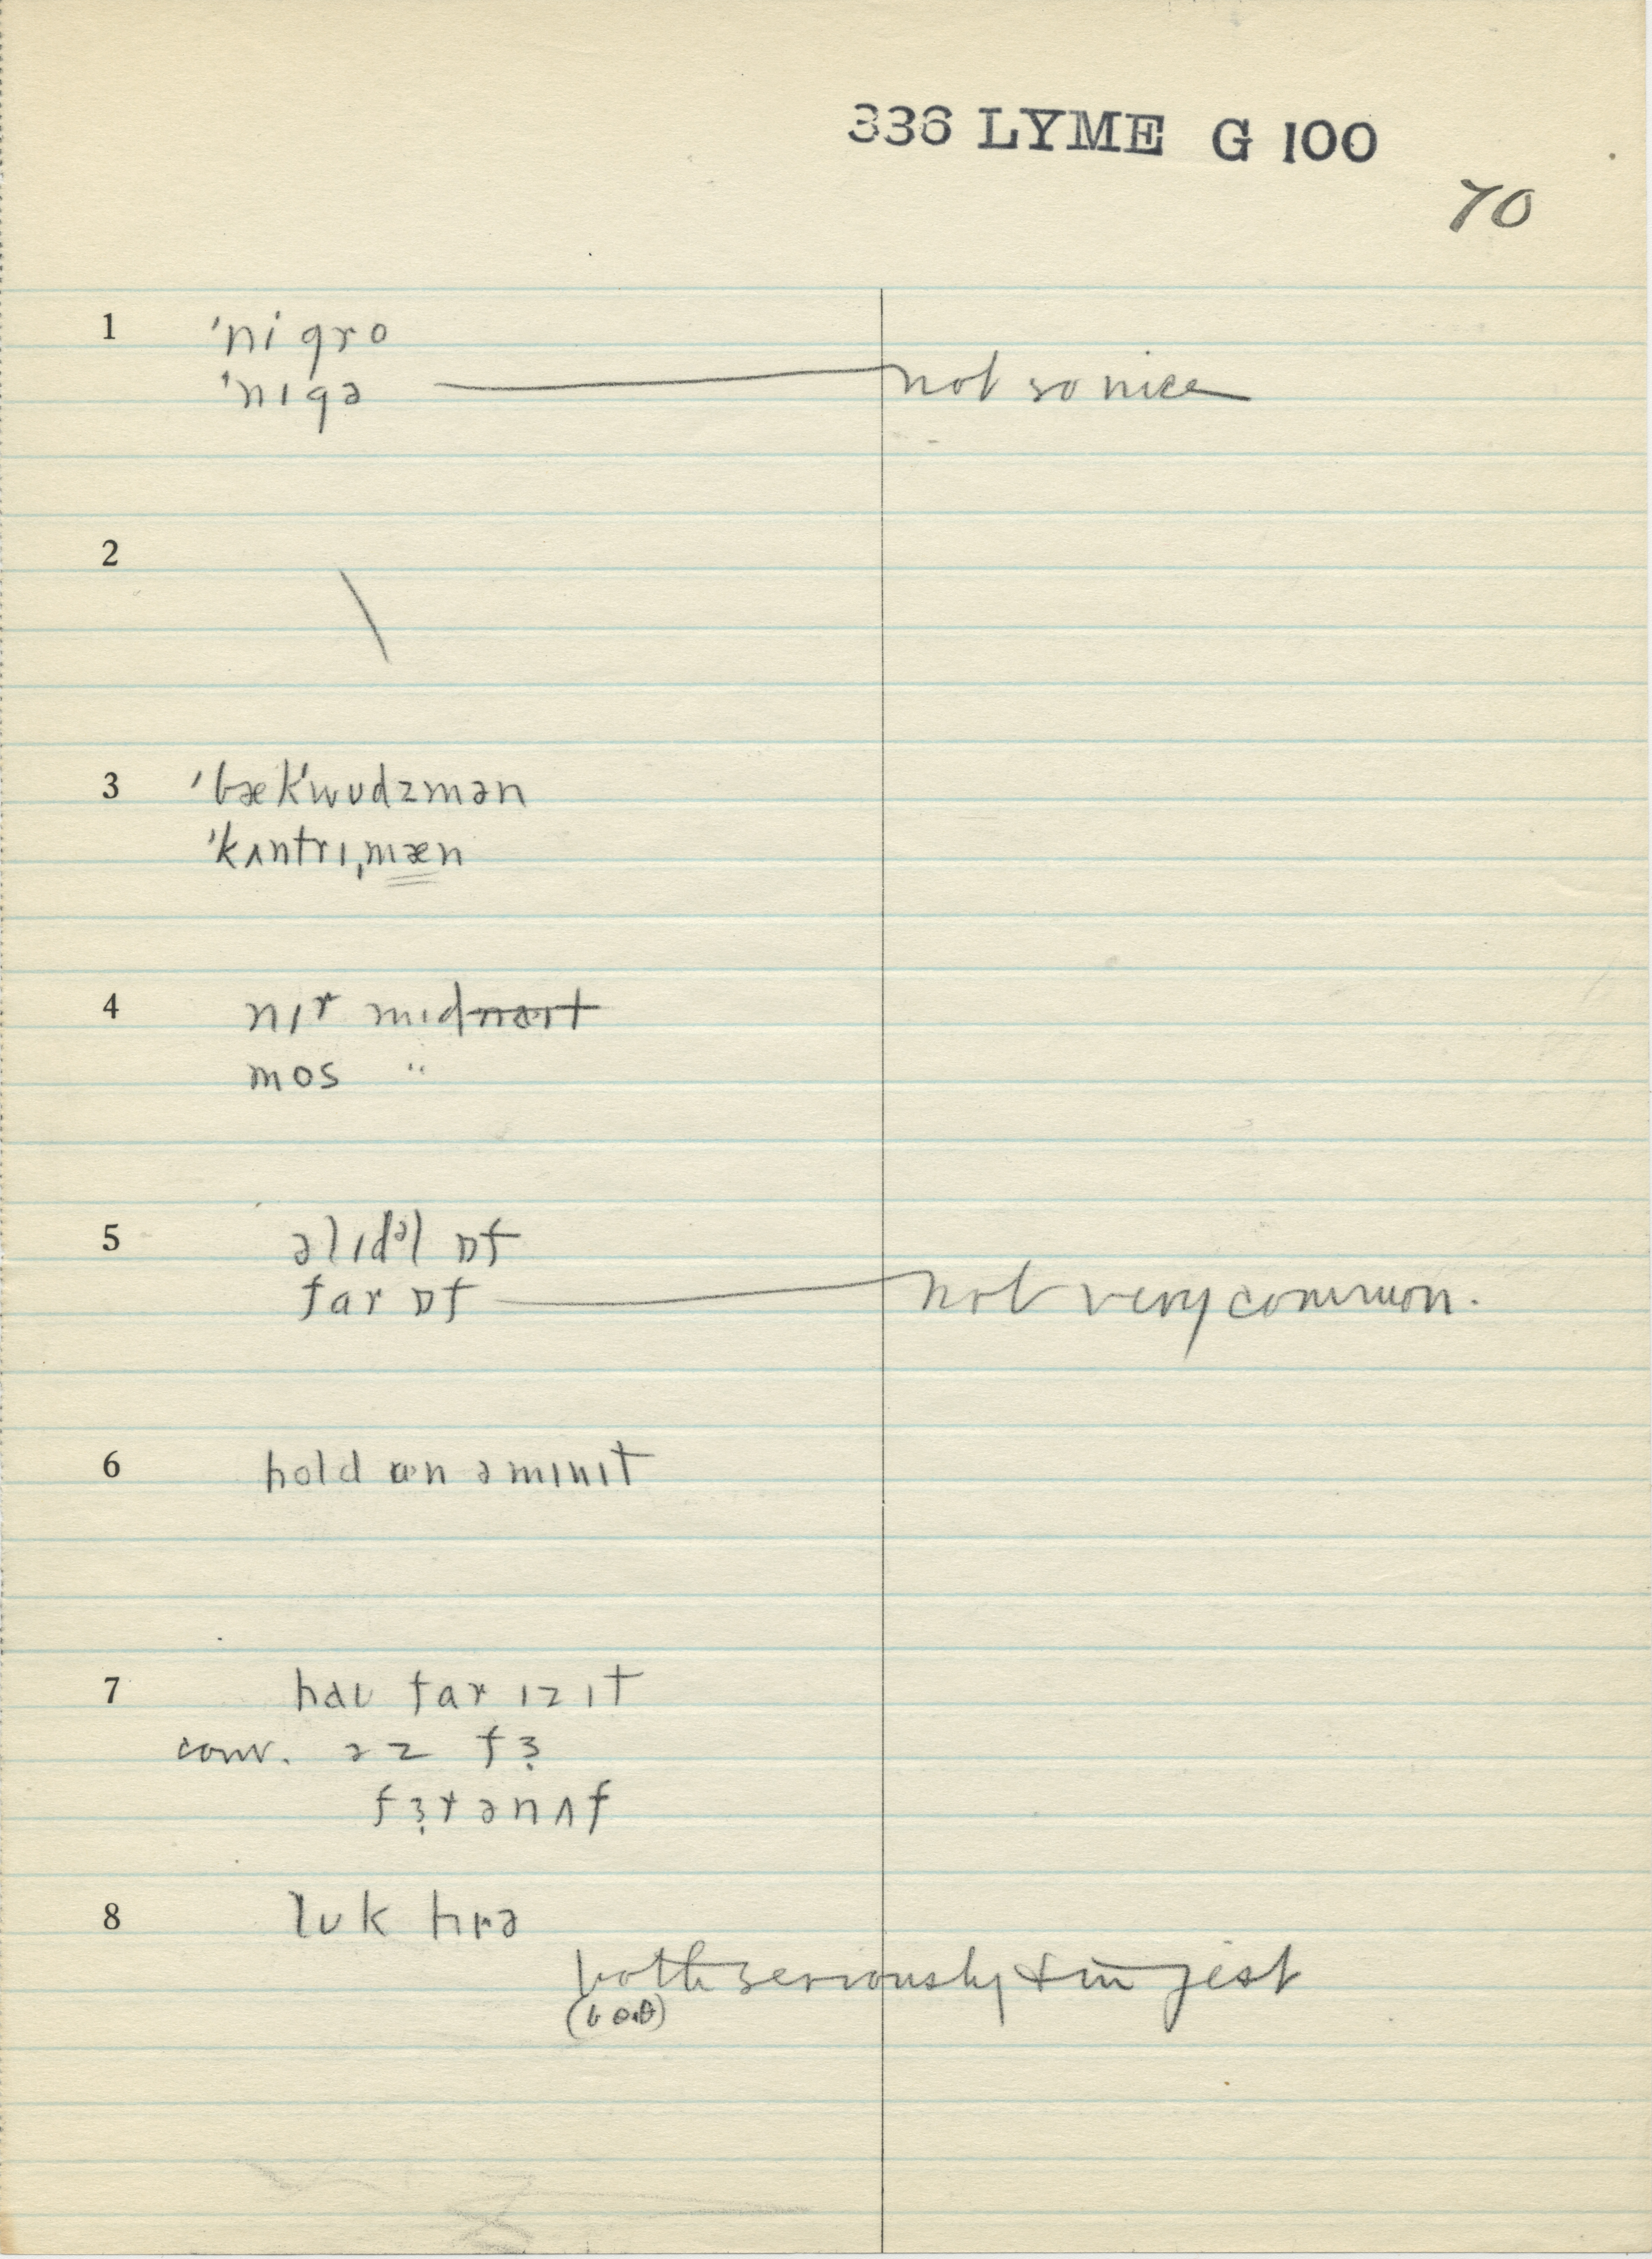 336 LYME G 100
70
1 'nigro
'nɪgə not so nice
2
3 'bæk'wudzmən
'kʌntrɪˌmæn
4 nɪr mɪdnaɪt
mos "
5 əlɪdᵊl ɒf
far ɒf not very common.
6 hold ən ə mɪnɪt
7 haʊ far ɪz ɪt
conv. əz fɜ
fɜr ənʌf
8 lʊk hɪrə
both seriously & in jest